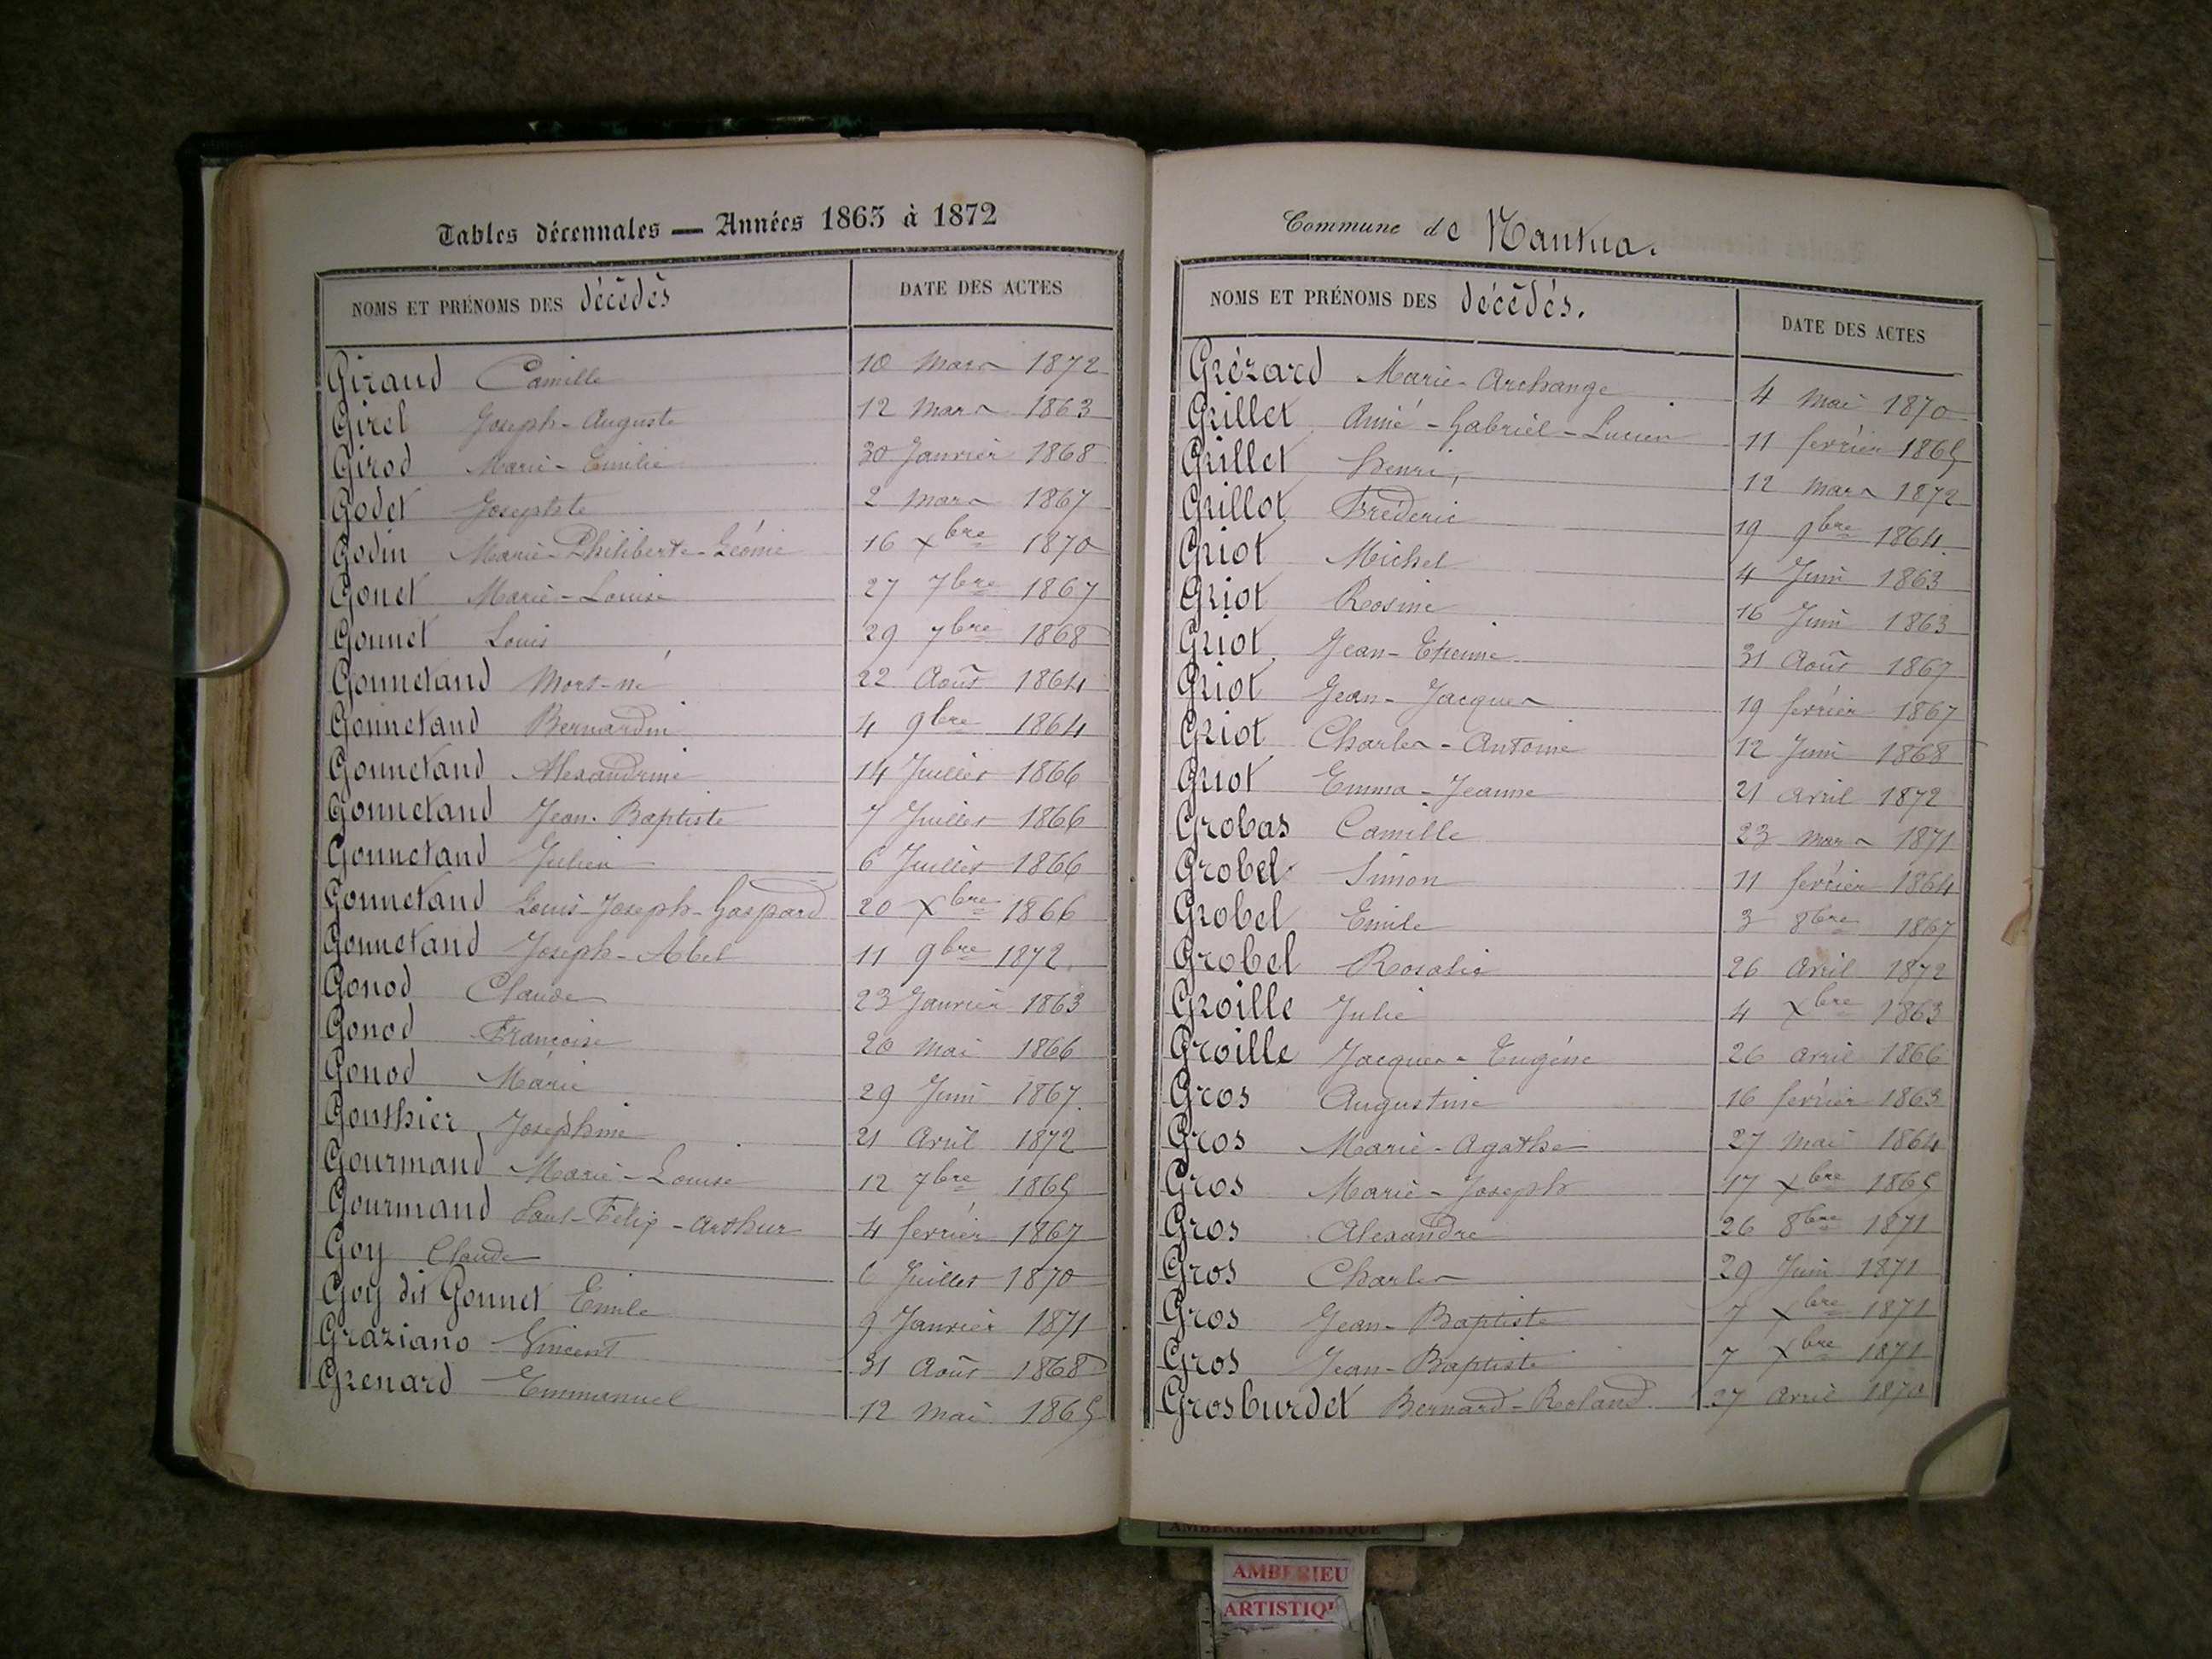 Tables décennales — Années 1863 à 1872
NOMS ET PRÉNOMS DES décédés DATE DES ACTES
Giraud Camille 10 Mars 1872
Girel Joseph-Auguste 12 Mars 1863
Girod Marie-Emilie 30 Janvier 1868
Godet Josephte 2 Mars 1867
Godin Marie-Philiberte-Léonie 16 Xbre 1870
Gonet Marie-Louise 27 7bre 1867
Gonnet Louis 29 7bre 1868
Gonnetand Mort-né 22 Août 1864
Gonnetand Bernardin 4 9bre 1864
Gonnetand Alexandrine 14 Juillet 1866
Gonnetand Jean-Baptiste 7 Juillet 1866
Gonnetand Julien 6 Juillet 1866
Gonnetand Louis-Joseph-Gaspard 20 Xbre 1866
Gonnetand Joseph-Abel 11 9bre 1872
Gonod Claude 23 Janvier 1863
Gonod Françoise 20 Mai 1866
Gonod Marie 29 Juin 1867
Gonthier Joséphine 21 Avril 1872
Gourmand Marie-Louise 12 7bre 1865
Gourmand Paul-Félix-Arthur 4 février 1867
Goy Claude 6 Juillet 1870
Goy dit Gonnet Emile 9 Janvier 1871
Graziano Vincent 31 Août 1868
Grenard Emmanuel 12 Mai 1865
Commune de Nantua.
NOMS ET PRÉNOMS DES décédés. DATE DES ACTES
Grézard Marie-Archange 4 Mai 1870
Grillet Aimé-Gabriel-Lucien 11 février 1865
Grillet henri, 12 Mars 1872
Grillot Frédéric 19 9bre 1864
Griot Michel 4 Juin 1863
Griot Rosine 16 Juin 1863
Griot Jean-Etienne 31 Août 1867
Griot Jean-Jacques 19 février 1867
Griot Charles-Antoine 12 Juin 1868
Griot Emma-Jeanne 21 avril 1872
Grobas Camille 23 Mars 1871
Grobel Simon 11 février 1864
Grobel Emile 3 8bre 1867
Grobel Rosalie 26 Avril 1872
Groille Julie 4 Xbre 1863
Groille Jacques-Eugéne 26 avril 1866
Gros Augustine 16 février 1863
Gros Marie-Agathe 27 Mai 1864
Gros Marie-Joseph 17 Xbre 1865
Gros Alexandre 26 8bre 1871
Gros Charles 29 Juin 1871
Gros Jean-Baptiste 7 Xbre 1871
Gros Jean-Baptiste 7 Xbre 1871
Grosburdet Bernard-Roland 27 avril 1870
AMBERIEU ARTISTIQUE
AMBERIEU
ARTISTIQU